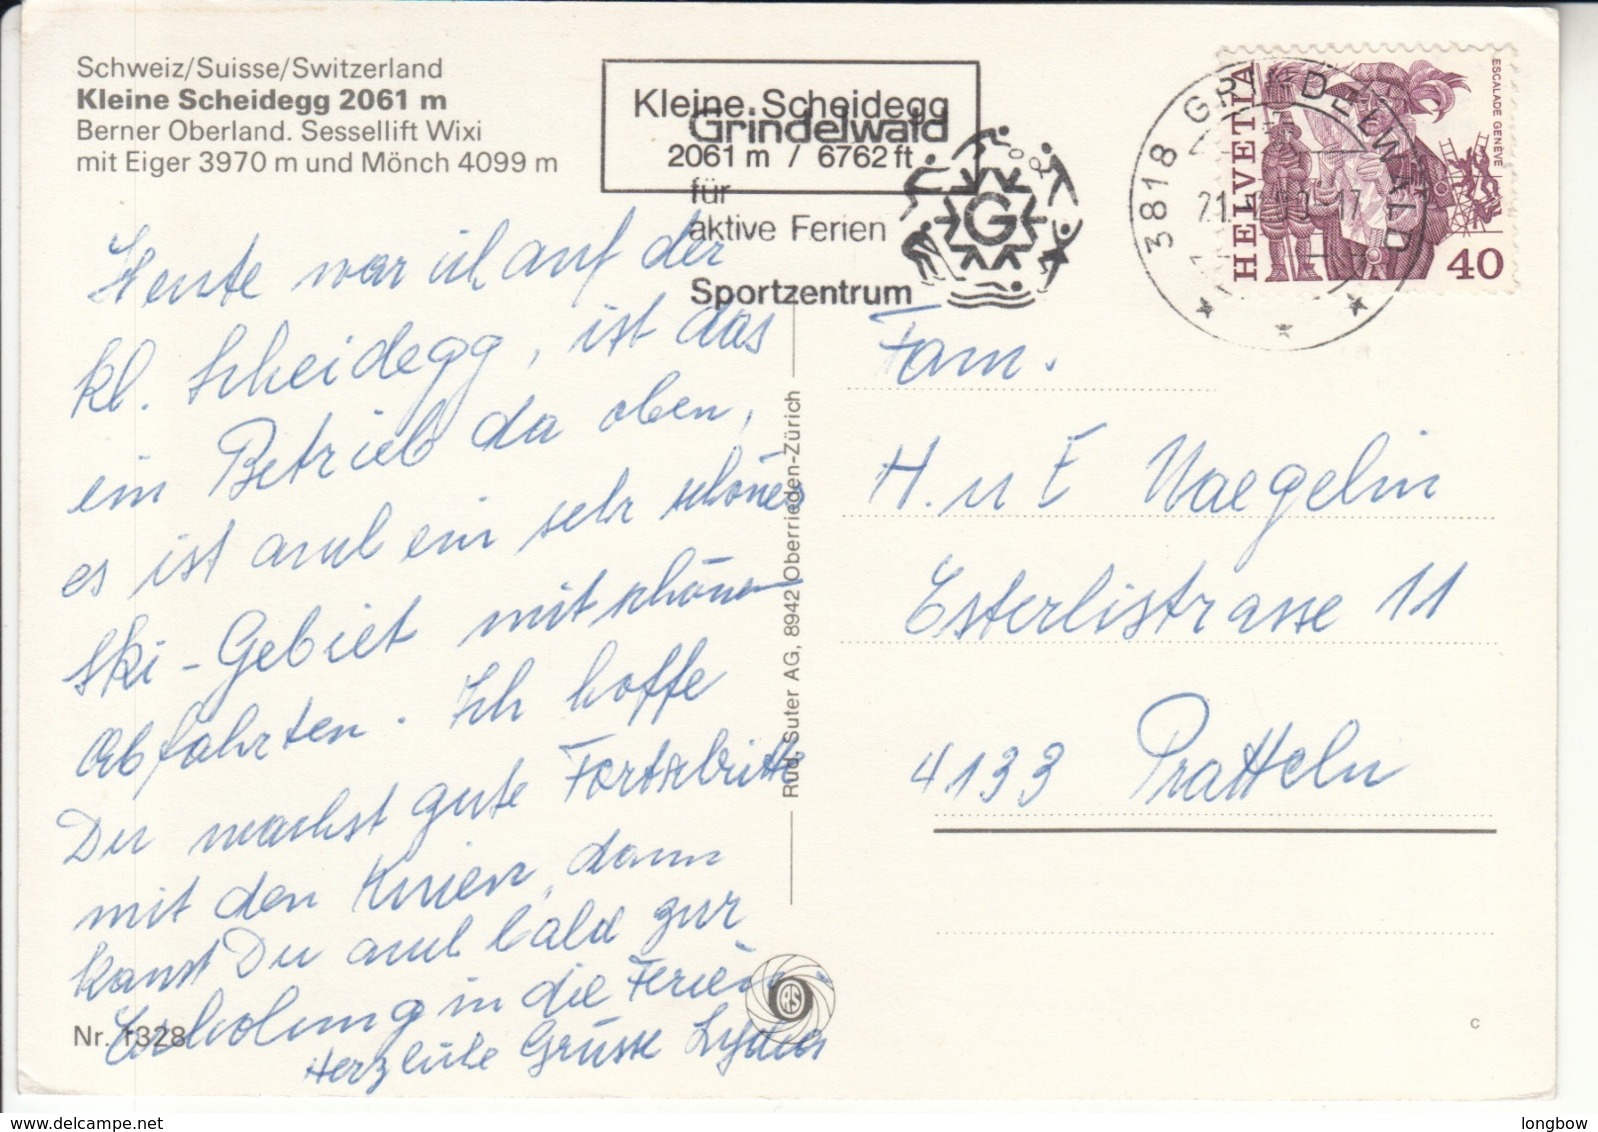 Schweiz/Suisse/Switzerland
Kleine Scheidegg 2061 m
Berner Oberland. Sessellift Wixi
mit Eiger 3970 m und Mönch 4099 m
Kleine Scheidegg
2061 m / 6762 ft
Grindelwald
für
aktive Ferien
Sportzentrum
G
3818 GRINDELWALD
HELVETIA
ESCALADE GENÈVE
40
Heute war ich auf der
kl. Scheidegg, ist das
ein Betrieb da oben,
es ist auch ein sehr schönes
Ski-Gebiet mit schönen
Abfahrten. Ich hoffe
Du machst gute Fortschritte
mit den Knien, dann
kanst Du auch bald zur
Erholung in die Ferien.
Herzliche Grüsse Lydia
Fam.
H. u E Naegelin
Esterlistrasse 11
4133 Pratteln
Rud. Suter AG, 8942 Oberrieden-Zürich
RS
Nr. 1328
c
longbow
www.delcampe.net